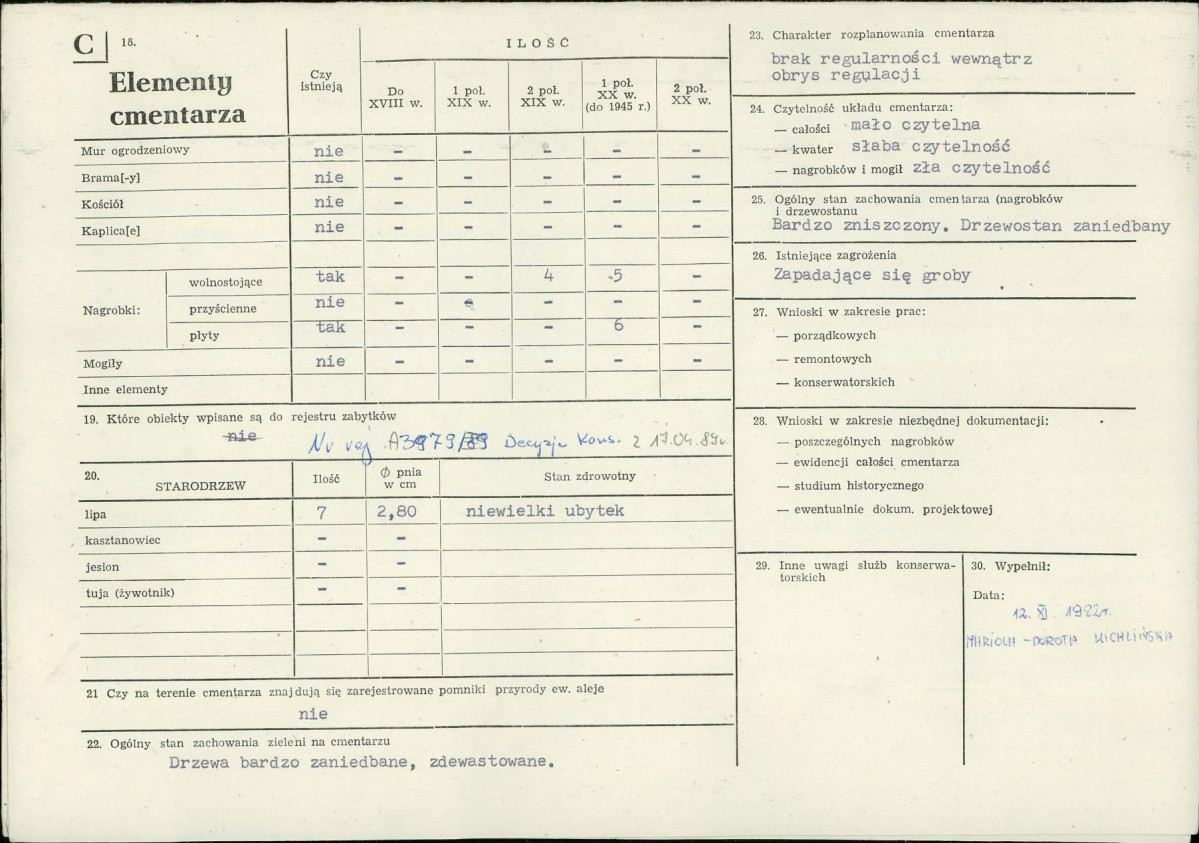 C 18.
Elementy
cmentarza
Czy
istnieją
ILOŚĆ
Do
XVIII w.
1 poł.
XIX w.
2 poł.
XIX w.
1 poł.
XX w.
(do 1945 r.)
2 poł.
XX w.
Mur ogrodzeniowy nie - - - - -
Brama[-y] nie - - - - -
Kościół nie - - - - -
Kaplica[e] nie - - - - -
Nagrobki:
wolnostojące tak - - 4 5 -
przyścienne nie - - - - -
płyty tak - - - 6 -
Mogiły nie - - - - -
Inne elementy
19. Które obiekty wpisane są do rejestru zabytków
nie Nr rej. A3979/89 Decyzja Kons. z 17.04.89r.
20. STARODRZEW
Ilość
Ø pnia
w cm
Stan zdrowotny
lipa 7 2,80 niewielki ubytek
kasztanowiec - -
jesion - -
tuja (żywotnik) - -
21 Czy na terenie cmentarza znajdują się zarejestrowane pomniki przyrody ew. aleje
nie
22. Ogólny stan zachowania zieleni na cmentarzu
Drzewa bardzo zaniedbane, zdewastowane.
23. Charakter rozplanowania cmentarza
brak regularności wewnątrz
obrys regulacji
24. Czytelność układu cmentarza:
— całości mało czytelna
— kwater słaba czytelność
— nagrobków i mogił zła czytelność
25. Ogólny stan zachowania cmentarza (nagrobków
i drzewostanu
Bardzo zniszczony. Drzewostan zaniedbany
26. Istniejące zagrożenia
Zapadające się groby
27. Wnioski w zakresie prac:
— porządkowych
— remontowych
— konserwatorskich
28. Wnioski w zakresie niezbędnej dokumentacji:
— poszczególnych nagrobków
— ewidencji całości cmentarza
— studium historycznego
— ewentualnie dokum. projektowej
29. Inne uwagi służb konserwa-
torskich
30. Wypełnił:
Data:
12. XI 1982r.
MARIOLA - DOROTA MICHLIŃSKA